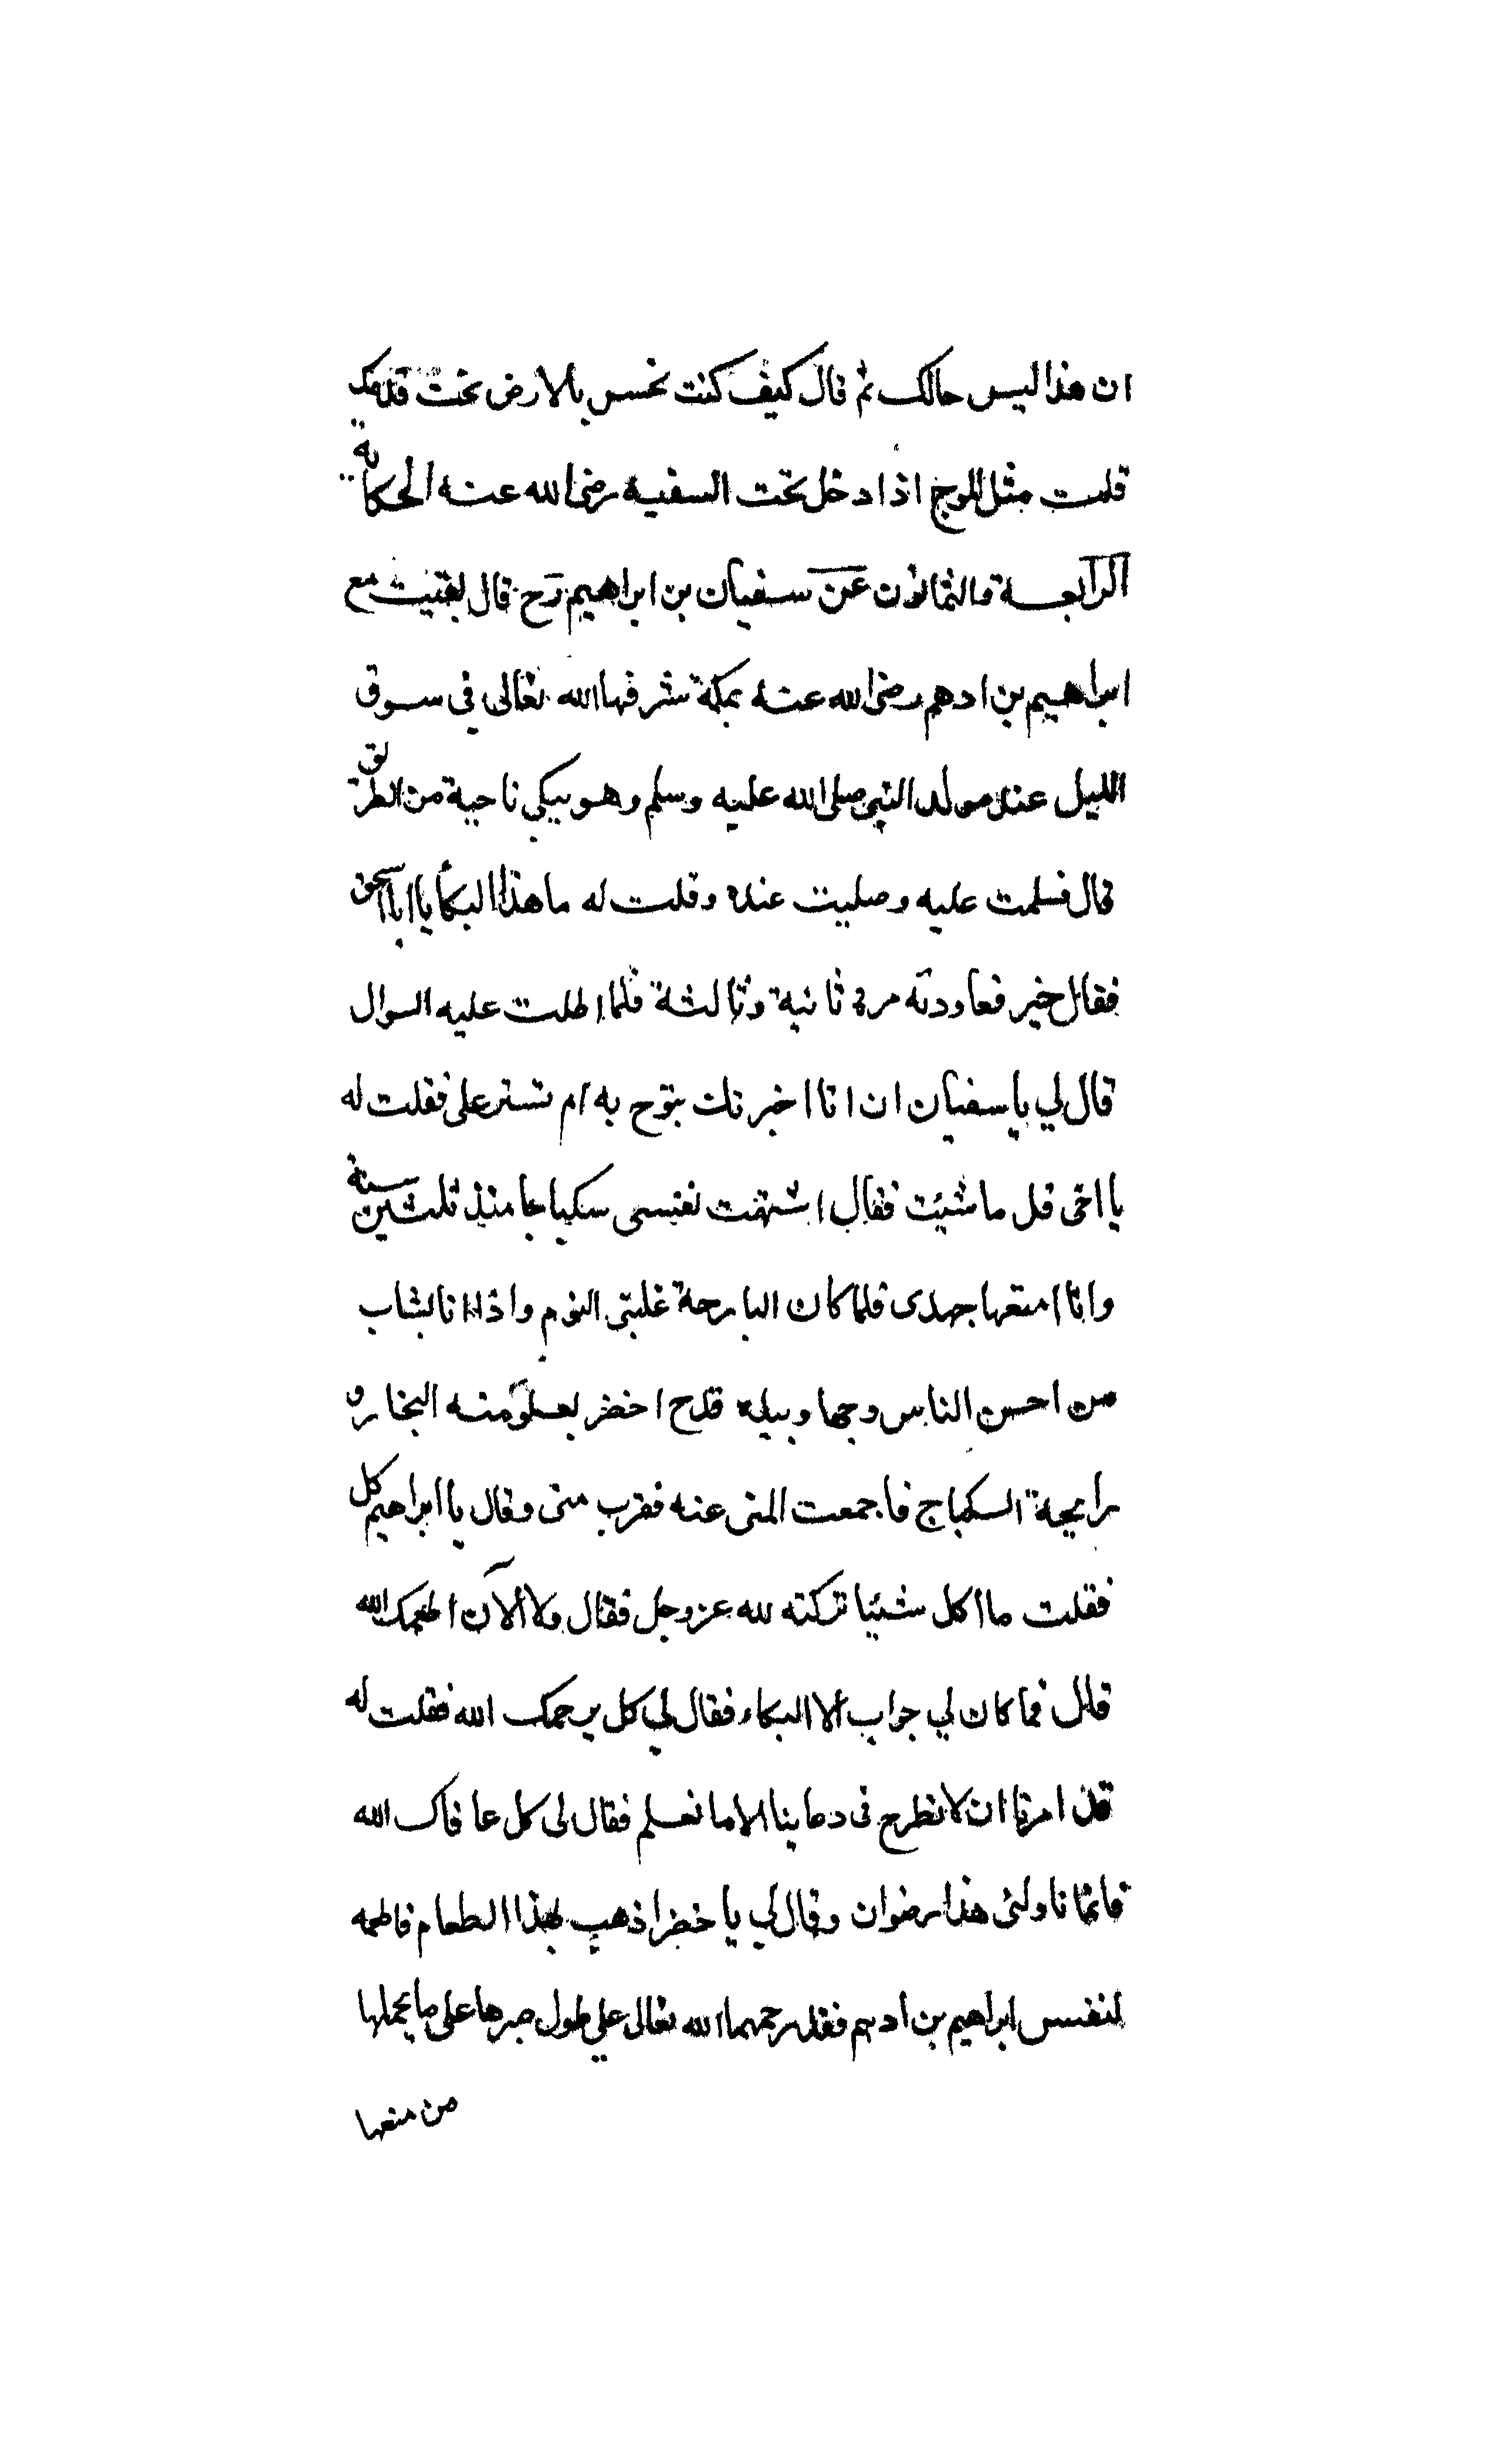 ان هذا ليس حالك ثم قال كيف كنت تحس بالارض تحت قدمك
قلت مثل الموج اذا دخل تحت السفينه رضى الله عنه الحكاية
الرابعة والثمانون عن سفيان بن ابراهيم رح قال لقيت مع
ابراهيم بن ادهم رضى الله عنه بمكة شرفها الله تعالى فى سوق
الليل عند مولد النبى صلى الله عليه وسلم وهو يبكي ناحية من الطريق
قال فسلمت عليه وصليت عنده وقلت له ما هذا البكأ يا ابا اسحق
فقال خير فعاودته مرة ثانية وثالثة فلما اطلت عليه السوال
قال لي يا سفيان ان انا اخبرتك بتوح به ام تستر على فقلت له
يا اخى قل ما شئيت فقال اشتهت نفسى سكباجا منذ ثلثين سنة
وانا امنعها جهدى فلما كان البارحة غلبتى النوم واذا انا بشاب
من احسن الناس وجها وبيده قدح اخضر يعلو منه البخار و
رايحة السكباج فاجمعت المتى عنه فقرب منى وقال يا ابراهيم كل
فقلت ما أكل شئيا تركته لله عز وجل فقال ولا ألآن اطعمك الله
قال فما كان لي جواب ألا البكاء فقال لي كل يرحمك الله فقلت له
قد امرنا ان لا نطرح فى دعاينا الا ما نعلم فقال لى كل عافاك الله
فانما ناولنى هذا رضوان وقال لي يا خضر اذهب بهذا الطعام فاطمه
لنفس ابراهيم بن أدهم فقد رحمها الله تعالى علي طول صبرها على ما يحملها
من منعها